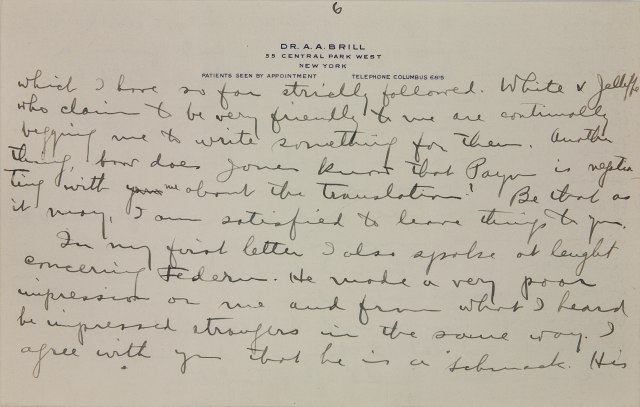 6
DR. A. A. BRILL
55 CENTRAL PARK WEST
NEW YORK
PATIENTS SEEN BY APPOINTMENT TELEPHONE COLUMBUS 6815
which I have so far strictly followed. White & Jelliffe
who claim to be very friendly to me are continually
begging me to write something for them. Another
thing, how does Jones know that Payne is negotia
ting with me about the translation? Be that as
it may, I am satisfied to leave things to you.
In my first letter I also spoke at lenght
concerning Federn. He made a very poor
impression on me and from what I heard
he impressed strangers in the same way. I
agree with you that he is a "schmock. His